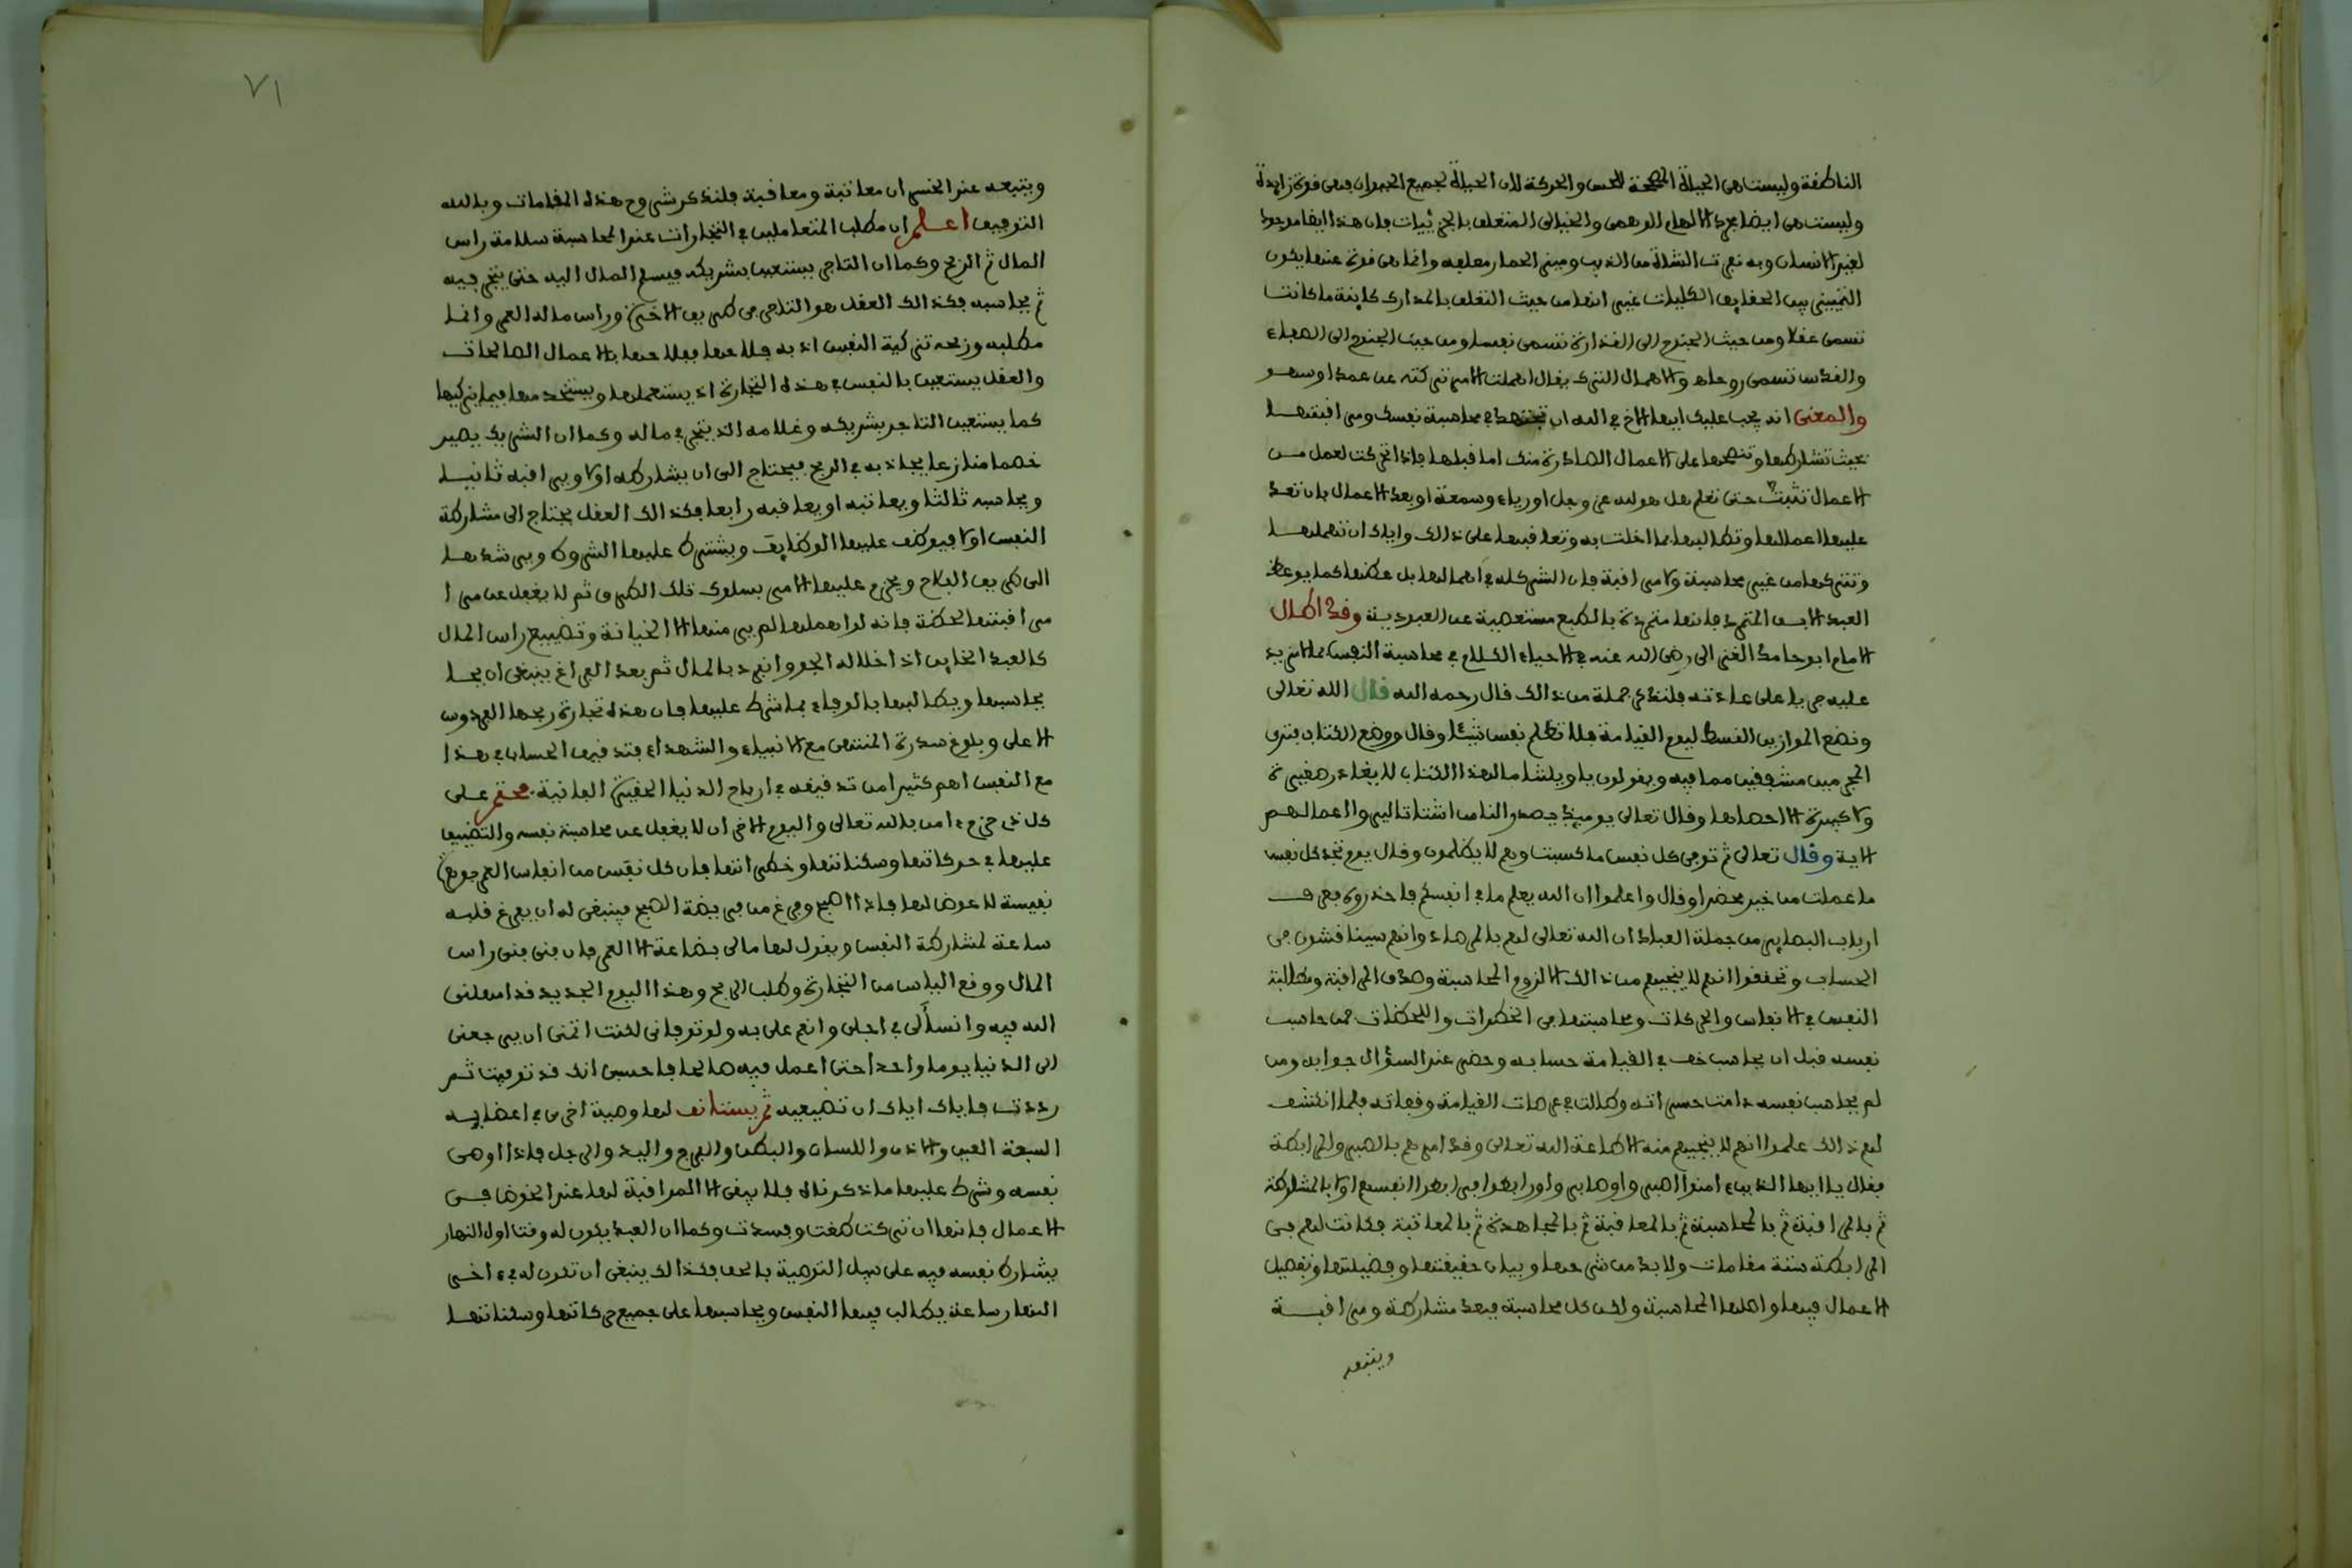 الناطقة وليست هي الحياة المصححة للحس والحركة لان الحياة لجميع الحيوان فهي قوة زايدة
وليست هي ايضا مجرد الالهام الوهمي والخيالي المتعلق بالجزئيات فان هذا ايضا موجود
لغير الانسان وبه نفرت الشاة من الذيب وميز الحمار معلفه وانما هي قوة عنها يكون
التمييز بين الحقايق الكليات غير انها من حيث التعلق بالمدارك كاينة ما كانت
تسمى عقلا ومن حيث الجنوح الى القذارة تسمى نفسا ومن حيث الجنوح الى الصفاء
والقدس تسمى روحا والاهمال الترك يقال اهملت الامر تركته عن عمد او سهو
والمعنى انه يجب عليك ايها الاخ في الله ان تجتهد في محاسبة نفسك ومراقبتها
بحيث تشارطها وتنصحها على الاعمال الصادرة منك اما قبلها فاذا تحركت لعمل من
الاعمال تثبت حتى تعلم هل هو لله عز وجل او رياء وسمعة او بعد الاعمال بان تعد
عليها اعمالها وتطالبها بما اخلت به وتعاقبها على ذالك واياك ان تهملها
وتتركها من غير محاسبة ولا مراقبة فان الشر كله في اهمالها بل عظها كما يوعظ
العبد الابق المتمرد فانها متمردة بالطبع مستعصية عن العبودية وقد اطال
الامام ابو حامد الغزالي رضي الله عنه في الاحياء الكلام في محاسبة النفس بما لا مزيد
عليه جريا على عادته فلنذكر جملة من ذالك قال رحمه الله قال الله تعالى
ونضع الموازين القسط ليوم القيامة فلا تظلم نفس شيئا وقال ووضع الكتاب فترى
المجرمين مشفقين مما فيه ويقولون يا ويلتنا مال هذا الكتاب لا يغادر صغيرة
ولا كبيرة الا احصاها وقال تعالى يوميذ يصدر الناس اشتاتا ليروا اعمالهم
الاية وقال تعالى ثم توفى كل نفس ما كسبت وهم لا يظلمون وقال يوم تجد كل نفس
ما عملت من خير محضرا وقال واعلموا ان الله يعلم ما في انفسكم فاحذروه فعرف
ارباب البصاير من جملة العباد ان الله تعالى لهم بالمرصاد وانهم سيناقشون في
الحساب وتحققوا انهم لا ينجيهم من ذالك الا لزوم المحاسبة وصدق المراقبة ومطالبة
النفس في الانفاس والحركات ومحاسبتها في الخطرات واللحظات فمن حاسب
نفسه قبل ان يحاسب خف في القيامة حسابه وحضر عند السؤال جوابه ومن
لم يحاسب نفسه دامت حسراته وطالت في عرصات القيامة وقفاته فلما انكشف
لهم ذالك علموا انهم لا ينجيهم منه الا طاعة الله تعالى وقد امرهم بالصبر والمرابطة
فقال يا ايها الذين ءامنوا اصبروا وصابروا ورابطوا فرابطوا انفسهم اولا بالمشارطة
ثم بالمراقبة ثم بالمحاسبة ثم بالمعاقبة ثم بالمجاهدة ثم بالمعاتبة فكانت لهم في
المرابطة ستة مقامات ولا بد من شرحها وبيان حقيقتها وفضيلتها وتفصيل
الاعمال فيها واصلها المحاسبة ولكن كل محاسبة فبعد مشارطة ومراقبة
ويتبعه
٧١
ويتبعه عند الخسران معاتبة ومعاقبة فلنذكر شروح هذه المقامات وبالله
التوفيق اعلم ان مطلب المتعاملين في التجارات عند المحاسبة سلامة راس
المال ثم الربح وكما ان التاجر يستعين بشريكه فيسلم المال اليه حتى يتجر فيه
ثم يحاسبه فكذالك العقل هو التاجر في طريق الاخرة وراس ماله العمر وانما
مطلبه وربحه تزكية النفس اذ به فلاحها فلاحها بالاعمال الصالحات
والعقل يستعين بالنفس في هذه التجارة اذ يستعملها ويستخدمها فيما يزكيها
كما يستعين التاجر بشريكه وغلامه الذ يتجر في ماله وكما ان الشريك يصير
خصما منازعا يجاذبه في الربح فيحتاج الى ان يشارطه اولا ويراقبه ثانيا
ويحاسبه ثالثا ويعاتبه او يعاقبه رابعا فكذالك العقل يحتاج الى مشارطة
النفس اولا فيوظف عليها الوظايف ويشترط عليها الشروط ويرشدها
الى طريق الفلاح ويجزم عليها الامر بسلوك تلك الطرق ثم لا يغفل عن مرا
مراقبتها لحظة فانه لو اهملها لم ير منها الا الخيانة وتضييع راس المال
كالعبد الخاين اذا خلا له الجو وانفرد بالمال ثم بعد الفراغ ينبغي ان يحا
يحاسبها ويطالبها بالوفاء بما شرط عليها فان هذه تجارة ربحها الفردوس
الاعلى وبلوغ سدرة المنتهى مع الانبياء والشهداء فتدقيق الحساب في هذا
مع النفس اهم كثيرا من تدقيقه في ارباح الدنيا الحقيرة الفانية فحتم على
كل ذي حزم ءامن بالله تعالى واليوم الاخر ان لا يغفل عن محاسبة نفسه والتضييق
عليها في حركاتها وسكناتها وخطراتها فان كل نفس من انفاس العمر جوهرة
نفيسة لا عوض لها فاذا اصبح وفرغ من فريضة الصبح فينبغي له ان يفرغ قلبه
ساعة لمشارطة النفس ويقول لها مالي بضاعة الا العمر فان فنى فنى راس
المال ووقع الياس من التجارة وطلب الربح وهذا اليوم الجديد قد امهلني
الله فيه وانسأ لي في اجلي وانعم علي به ولو توفاني لكنت اتمنى ان يرجعني
الى الدنيا يوما واحدا حتى اعمل فيه صالحا فاحسبي انك قد توفيت ثم
رددت فاياك اياك ان تضيعيه ثم يستانف لها وصية اخرى في اعضايه
السبعة العين والاذن واللسان والبطن والفرج واليد والرجل فاذا اوصى
نفسه وشرط عليها ما ذكرناه فلا يبقى الا المراقبة لها عند الخوض في
الاعمال فانها ان تركت طغت وفسدت وكما ان العبد يكون له وقت اول النهار
يشارط نفسه فيه على سبيل التوصية بالحق فكذالك ينبغي ان تكون له في ءاخر
النهار ساعة يطالب فيها النفس ويحاسبها على جميع حركاتها وسكناتها